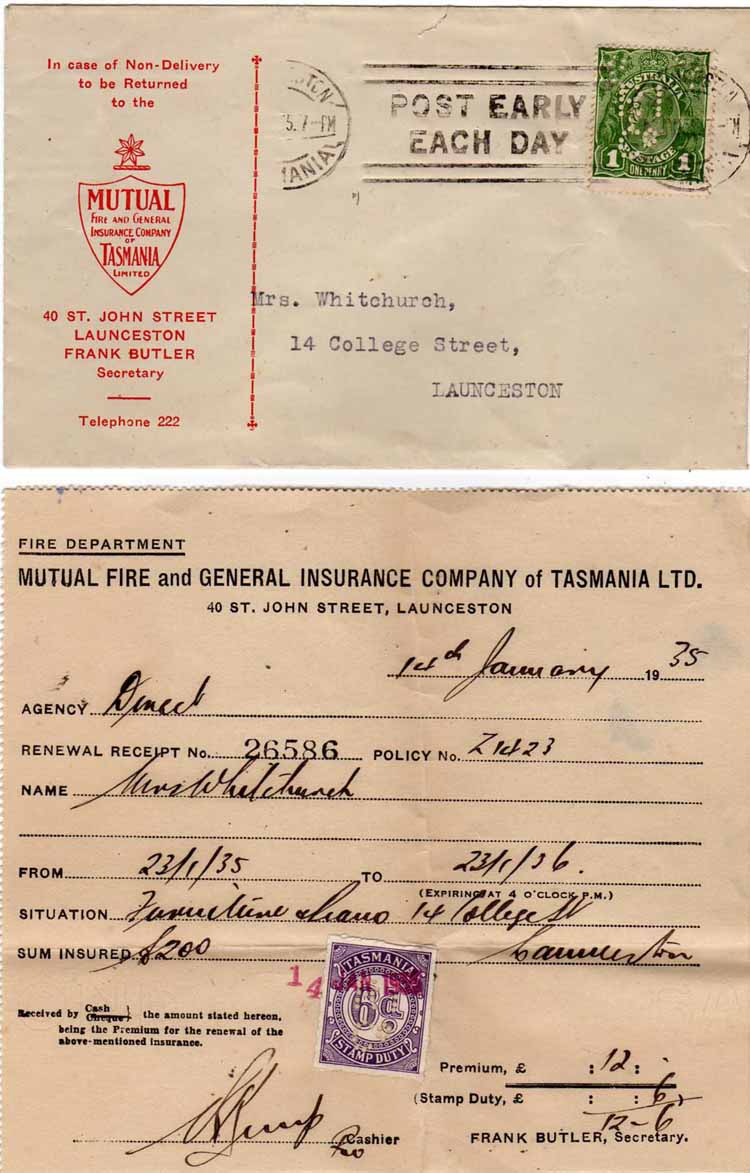 In case of Non-Delivery
to be Returned
to the
MUTUAL
FIRE AND GENERAL
INSURANCE COMPANY
OF
TASMANIA
LIMITED
40 ST. JOHN STREET
LAUNCESTON
FRANK BUTLER
Secretary
Telephone 222
5. 7-PM
POST EARLY
EACH DAY
AUSTRALIA
POSTAGE
1 ONE PENNY 1
Mrs. Whitchurch,
14 College Street,
LAUNCESTON
FIRE DEPARTMENT
MUTUAL FIRE and GENERAL INSURANCE COMPANY of TASMANIA LTD.
40 ST. JOHN STREET, LAUNCESTON
14th January 1935
AGENCY Direct
RENEWAL RECEIPT No. 26586 POLICY No. Z1423
NAME Mrs Whitchurch
FROM 23/1/35 TO 23/1/36.
(EXPIRING AT 4 O'CLOCK P.M.)
SITUATION Furniture & Piano 14 College St
SUM INSURED £200 Launceston
TASMANIA
6d
STAMP DUTY
14 JAN
Received by Cash Cheque } the amount stated hereon,
being the Premium for the renewal of the
above-mentioned insurance.
Premium, £ : 12 : -
(Stamp Duty, £ : : 6)
12-6
Cashier
FRANK BUTLER, Secretary.